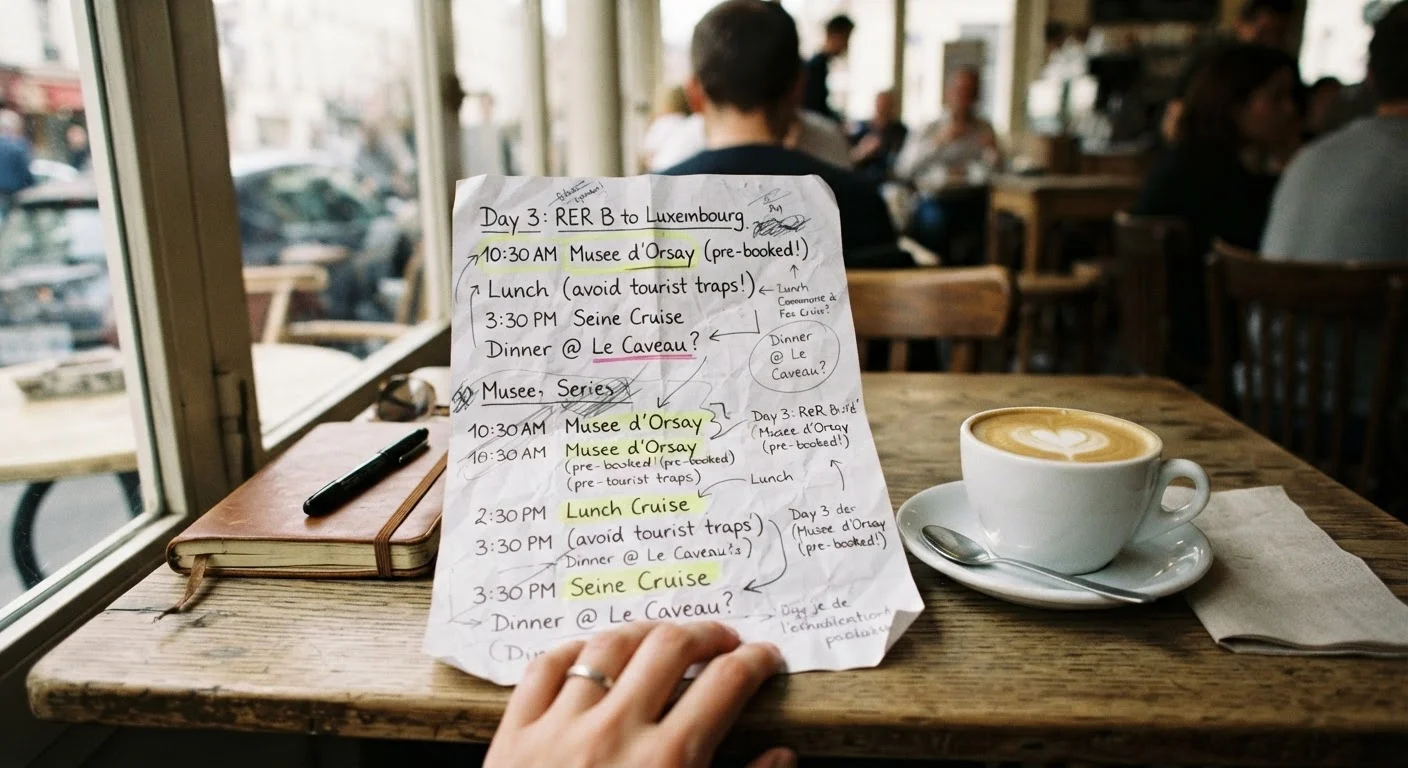 Day 3: RER B to Luxembourg.
10:30 AM Musee d'Orsay (pre-booked!)
Lunch (avoid tourist traps!)
Lunch
3:30 PM Seine Cruise
Dinner @ Le Caveau?
Dinner
@ Le
Caveau?
Musee, Series
10:30 AM Musee d'Orsay
10:30 AM Musee d'Orsay
(pre-booked! (pre-booked)
(pre-tourist traps)
Day 3: RER
(Musee d'Orsay
(pre-booked!)
Lunch
2:30 PM Lunch Cruise
3:30 PM (avoid tourist traps')
Dinner @ Le Caveau?s)
Day 3 der
(Musee d'Orsay
(pre-booked!)
3:30 PM Seine Cruise
Dinner @ Le Caveau?
(Din